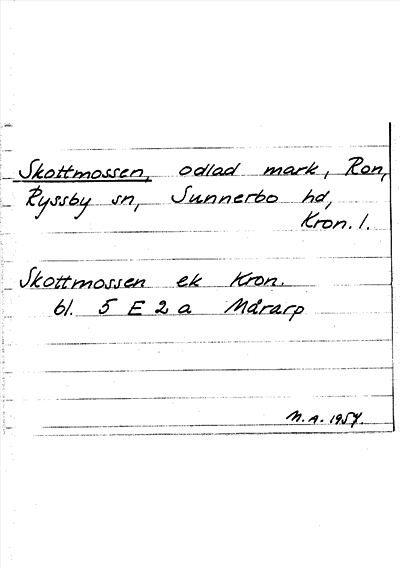 Skottmossen, odlad mark, Ron,
Ryssby sn, Sunnerbo hd,
Kron. l.
Skottmossen ek Kron.
bl. 5 E 2 a Mårarp
M.A. 1957.